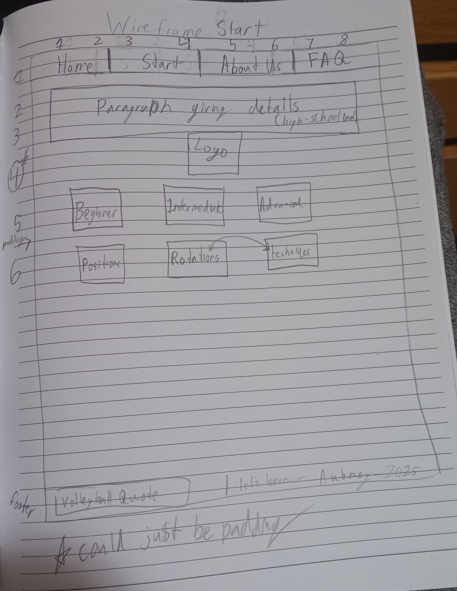 Wireframe Start
1 2 3 4 5 6 7 8
1 Home | Start | About Us | FAQ
2 Paragraph giving details
3 (high-school level)
4* Logo
5 Beginner Intermediate Advanced
padding
6 Positions Rotations techniques
footer Volleyball Quote | Let's learn - Aubrey 2025
* could just be padding